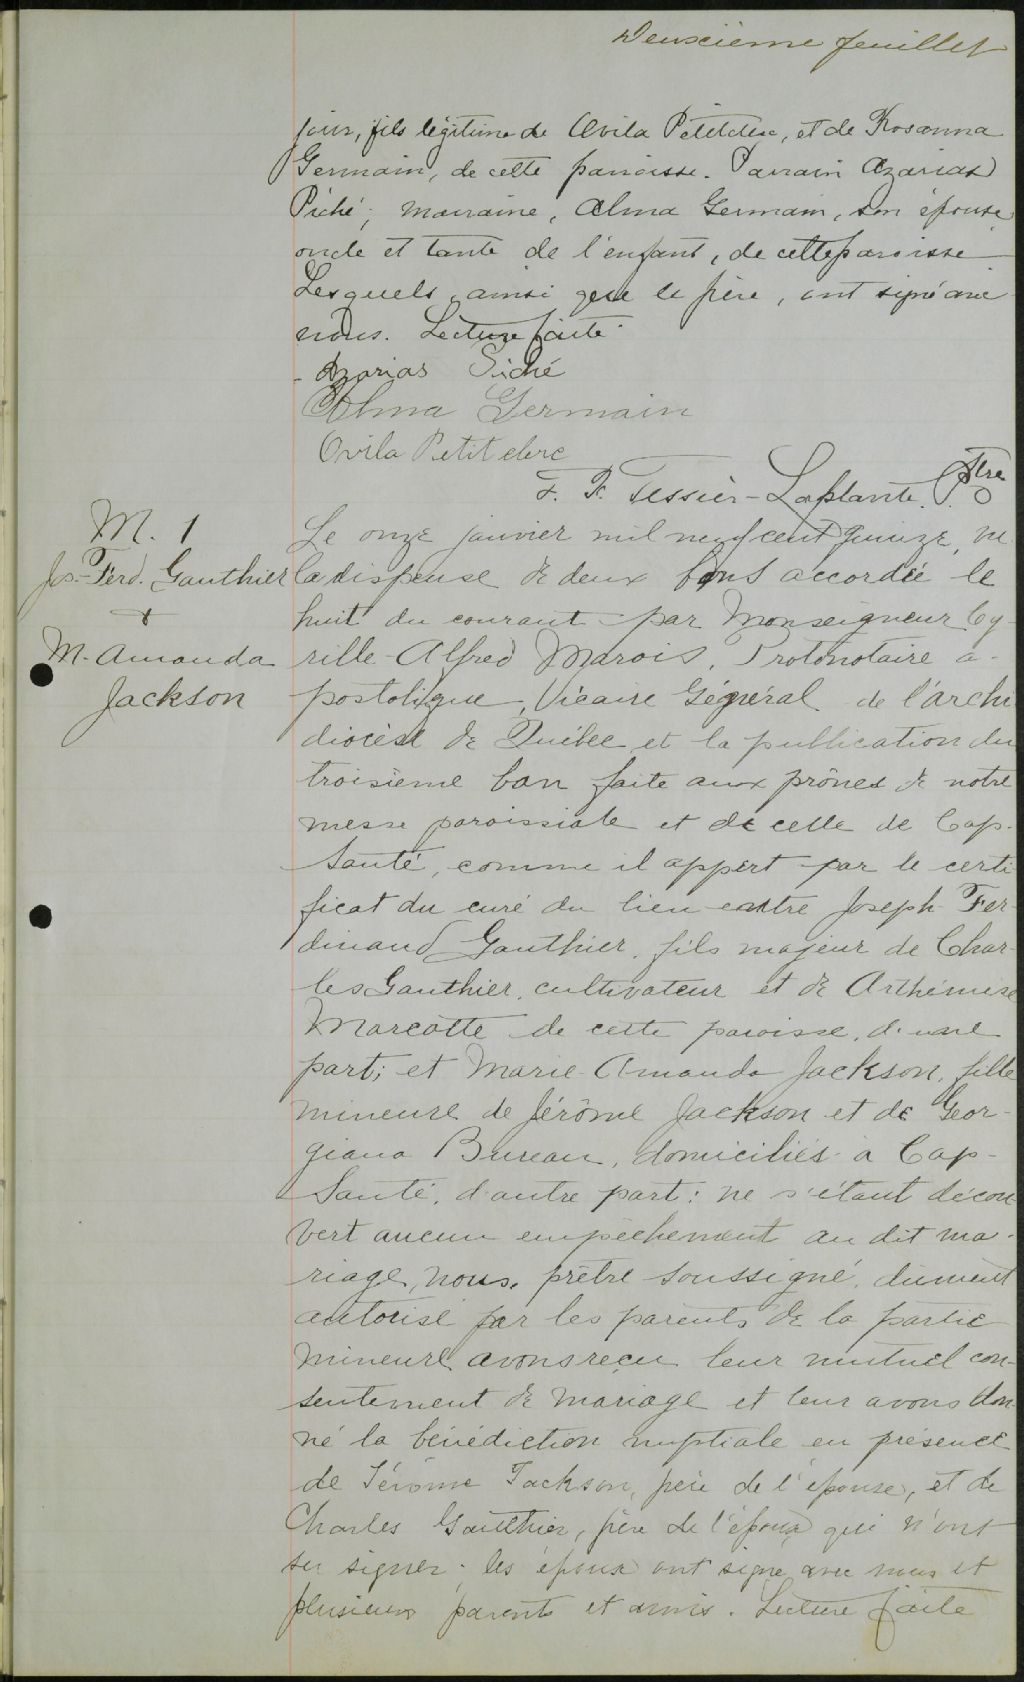 Deuxième feuillet
jour, fils légitime de Ovila Petitclerc, et de Rosanna
Germain, de cette paroisse. Parrain Azarias
Piché; marraine, Alma Germain, son épouse,
oncle et tante de l'enfant, de cette paroisse
Lesquels, ainsi que le père, ont signé avec
nous. Lecture faite.
Azarias Piché
Alma Germain
Ovila Petitclerc
F. X. Tessier-Laplante, Ptre
M. 1
Jos. Ferd. Gauthier
+
M. Amanda
Jackson
Le onze janvier mil neuf cent quinze, vu
la dispense de deux bans accordée le
huit du courant par Monseigneur Cy-
rille-Alfred Marois, Protonotaire a-
postolique, Vicaire Général de l'archi
diocèse de Québec et la publication du
troisième ban faite aux prônes de notre
messe paroissiale et de celle de Cap-
Santé, comme il appert par le certi
ficat du curé du lieu entre Joseph Fer-
dinand Gauthier, fils majeur de Char-
les Gauthier, cultivateur et de Arthémise
Marcotte de cette paroisse, d'une
part; et Marie-Amanda Jackson, fille
mineure de Jérôme Jackson et de Geor-
giana Bureau, domiciliés à Cap-
Santé, d'autre part: ne s'étant décou
vert aucun empêchement au dit ma-
riage, nous, prêtre soussigné, dûment
autorisé par les parents de la partie
mineure avons reçu leur mutuel con-
sentement de mariage et leur avons don-
né la bénédiction nuptiale en présence
de Jérôme Jackson, père de l'épouse, et de
Charles Gauthier, père de l'époux qui n'ont
su signer; les époux ont signé avec nous et
plusieurs parents et amis. Lecture faite